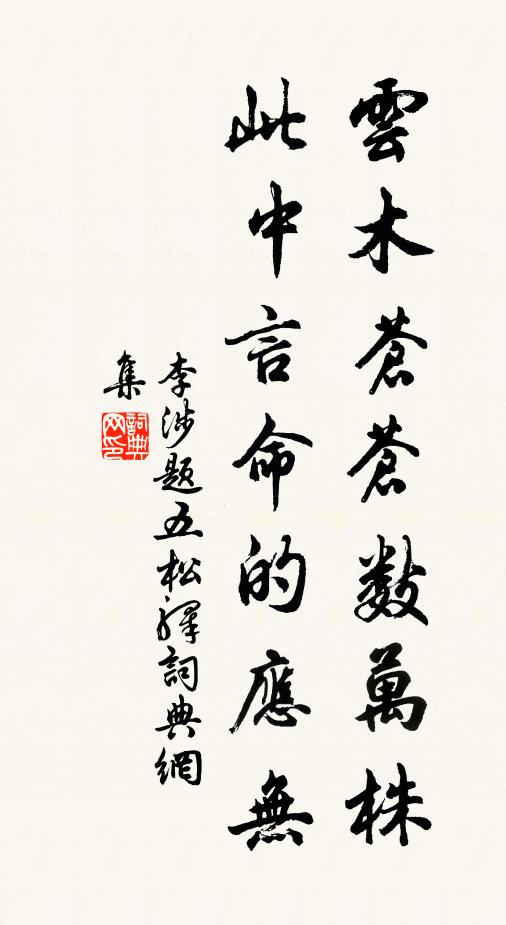 雲木蒼蒼數萬株
此中言命的應無
李涉題五松驛詞典網
集
詞典
网印